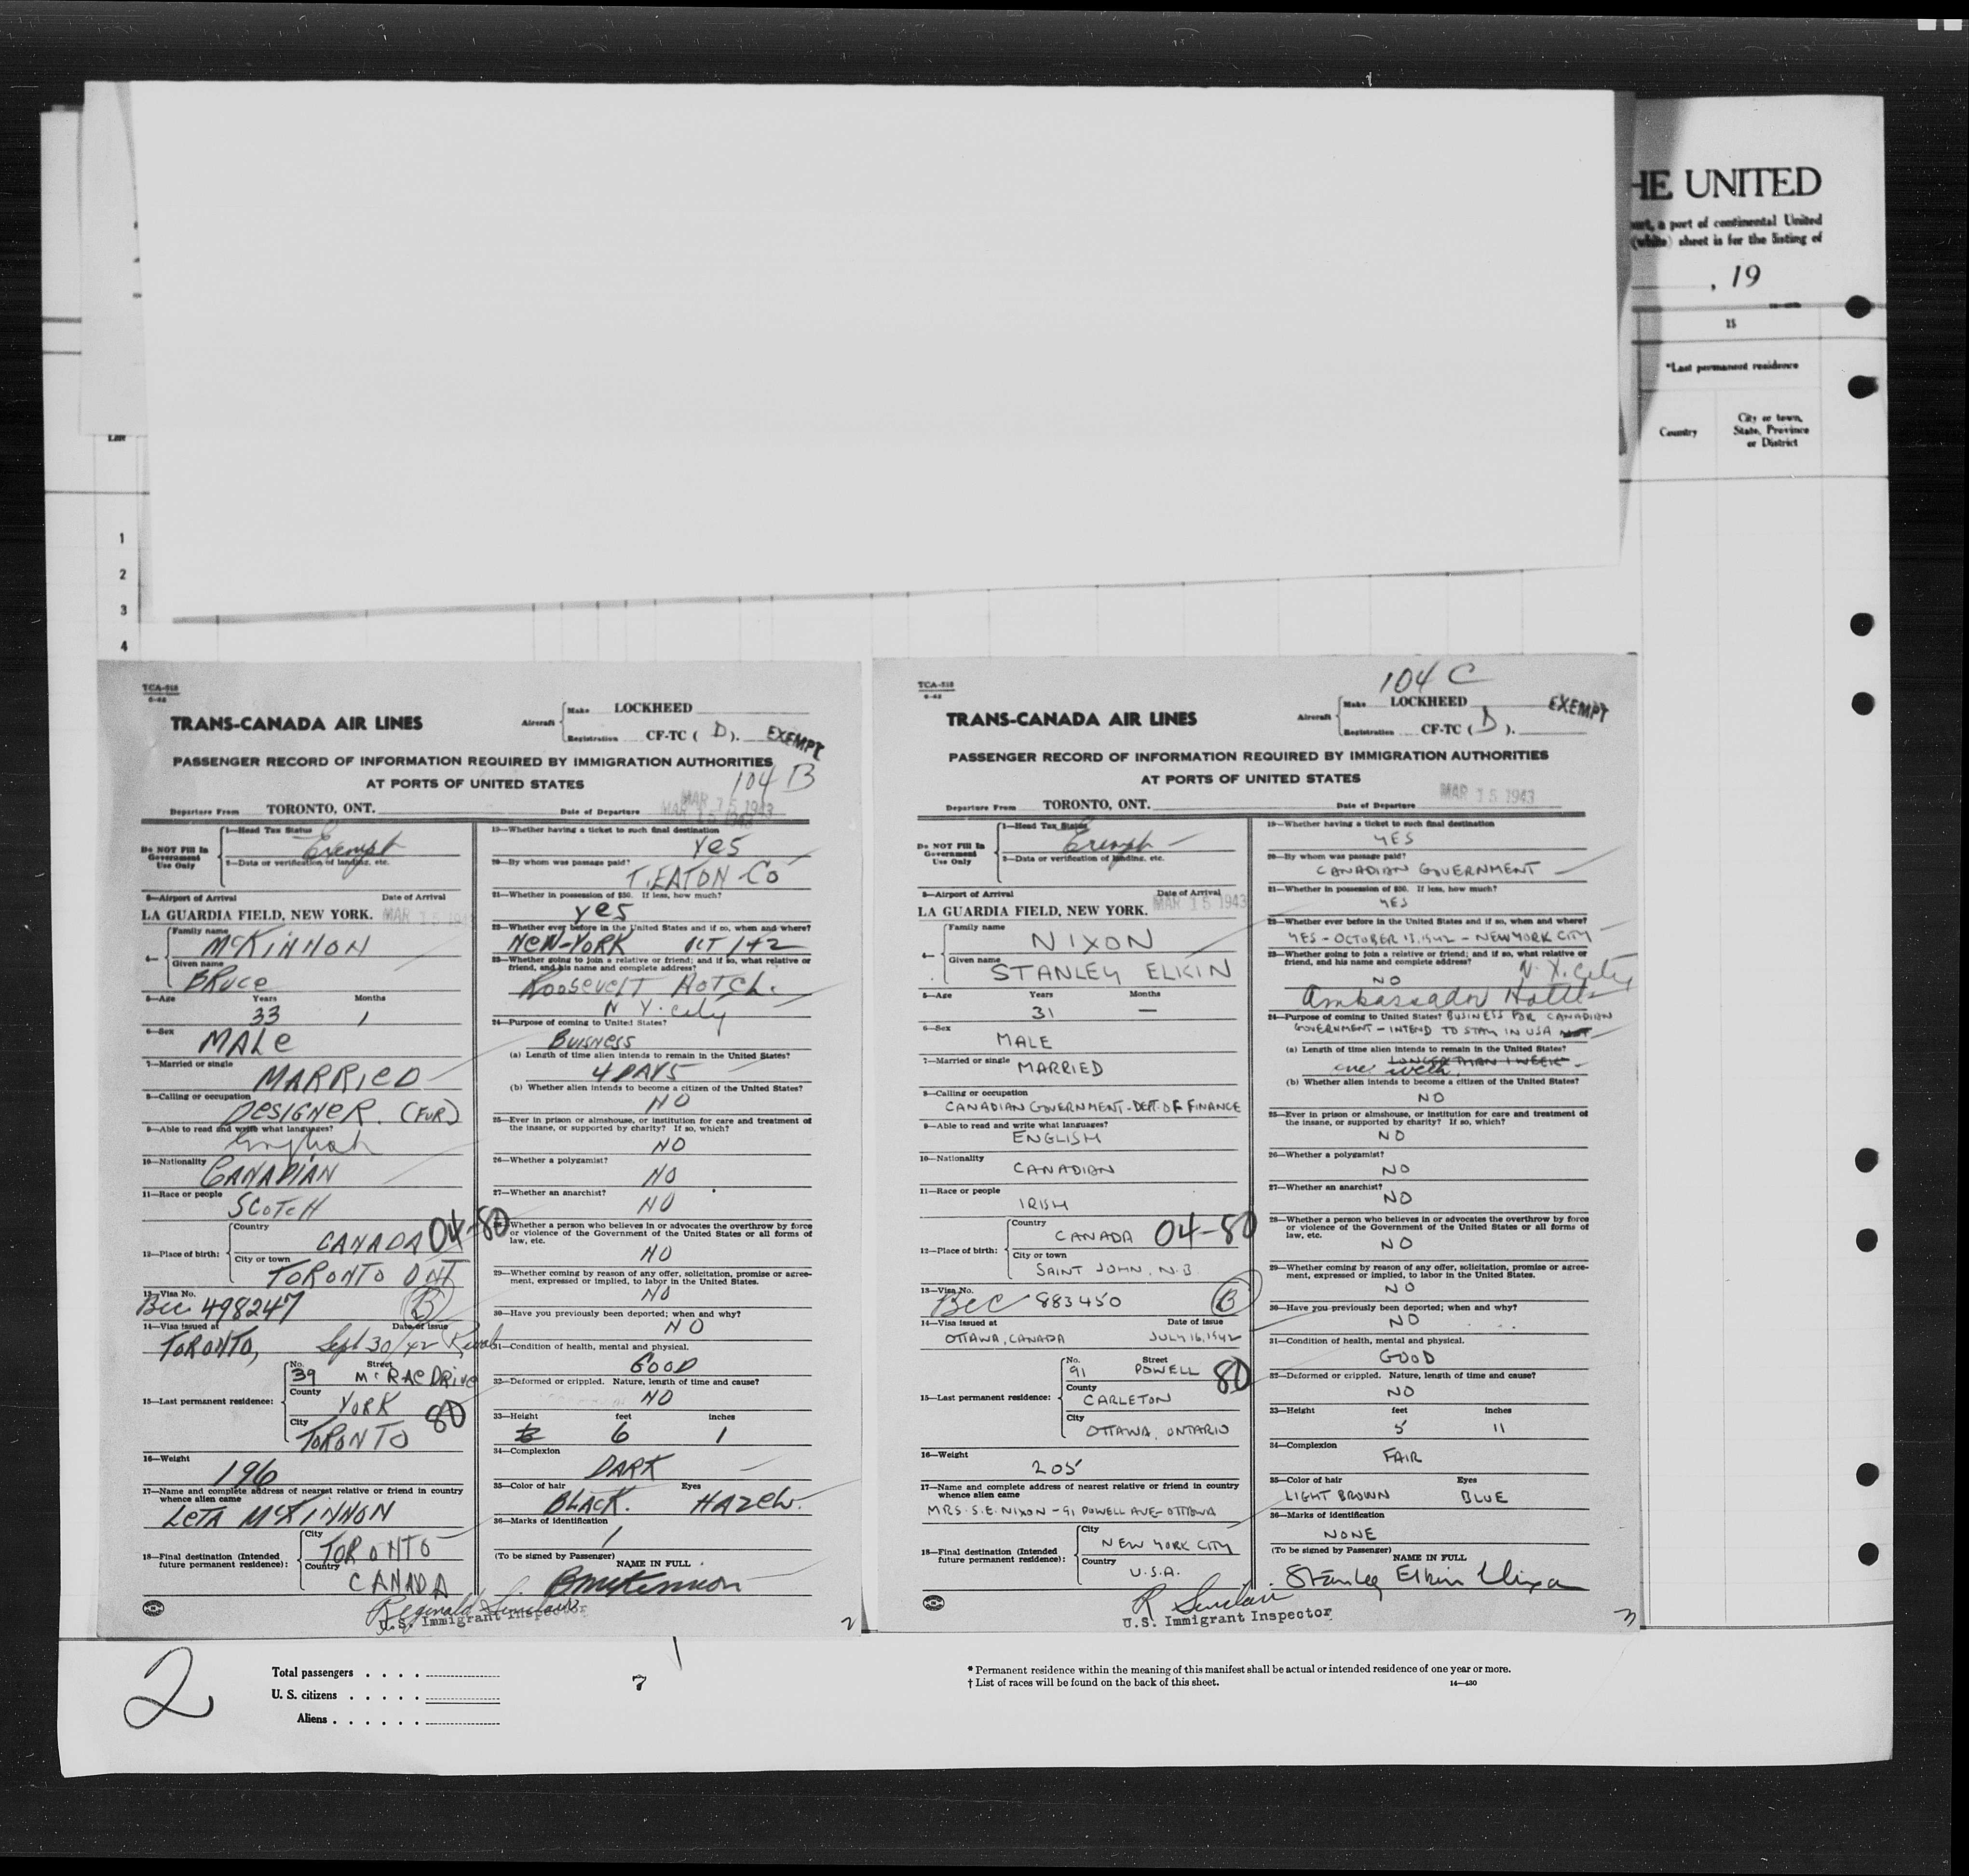 HE UNITED
a port of continental United
(white) sheet is for the listing of
, 19
15
*Last permanent residence
Country
City or town,
State, Province
or District
1
2
3
4
TCA-518
6-42
TRANS-CANADA AIR LINES
Aircraft
Make LOCKHEED
Registration CF-TC ( D ).
EXEMPT
PASSENGER RECORD OF INFORMATION REQUIRED BY IMMIGRATION AUTHORITIES
AT PORTS OF UNITED STATES
104 B
Departure From TORONTO, ONT.
Date of Departure MAR 15 1943
MAR 15 1943
Do NOT Fill In
Government
Use Only
1—Head Tax Status
Exempt
2—Data or verification, of landing, etc.
3—Airport of Arrival Date of Arrival
LA GUARDIA FIELD, NEW YORK. MAR 15 194
4—
Family name
McKINNON
Given name
BRUCE
5—Age Years Months
33 1
6—Sex
MALE
7—Married or single
MARRIED
8—Calling or occupation
DESIGNER. (FUR)
9—Able to read and write what languages?
English
10—Nationality
CANADIAN
11—Race or people
SCOTCH
12—Place of birth:
Country
CANADA 04-80
City or town
TORONTO ONT
13—Visa No.
Bcc 498247 B
14—Visa issued at Date of issue
TORONTO, Sept 30/42
15—Last permanent residence:
No. Street
39 McRAE DRIVE
County
YORK
80
City
TORONTO
16—Weight
196
17—Name and complete address of nearest relative or friend in country
whence alien came
LETA McKINNON
18—Final destination (Intended
future permanent residence):
City
TORONTO
Country
CANADA
19—Whether having a ticket to such final destination
YES
20—By whom was passage paid?
T. EATON Co
21—Whether in possession of $50. If less, how much?
YES
22—Whether ever before in the United States and if so, when and where?
NEW-YORK OCT 1 42
23—Whether going to join a relative or friend; and if so, what relative or
friend, and his name and complete address?
ROOSEVELT HOTEL.
N Y. city
24—Purpose of coming to United States?
BUISNESS
(a) Length of time alien intends to remain in the United States?
4 DAYS
(b) Whether alien intends to become a citizen of the United States?
NO
25—Ever in prison or almshouse, or institution for care and treatment of
the insane, or supported by charity? If so, which?
NO
26—Whether a polygamist?
NO
27—Whether an anarchist?
NO
Whether a person who believes in or advocates the overthrow by force
or violence of the Government of the United States or all forms of
law, etc.
NO
29—Whether coming by reason of any offer, solicitation, promise or agree-
ment, expressed or implied, to labor in the United States.
NO
30—Have you previously been deported; when and why?
NO
31—Condition of health, mental and physical.
GOOD
32—Deformed or crippled. Nature, length of time and cause?
NO
33—Height feet inches
6 1
34—Complexion
DARK
35—Color of hair Eyes
BLACK. HAZEL.
36—Marks of identification
(To be signed by Passenger)
NAME IN FULL
B McKinnon
Reginald Sinclair
U.S. Immigrant Inspector
2
104 C
TCA-518
6-42
TRANS-CANADA AIR LINES
Aircraft
Make LOCKHEED
Registration CF-TC ( D ).
EXEMPT
PASSENGER RECORD OF INFORMATION REQUIRED BY IMMIGRATION AUTHORITIES
AT PORTS OF UNITED STATES
Departure From TORONTO, ONT.
Date of Departure MAR 15 1943
Do NOT Fill In
Government
Use Only
1—Head Tax Status
Exempt
2—Data or verification of landing, etc.
3—Airport of Arrival Date of Arrival
LA GUARDIA FIELD, NEW YORK. MAR 15 1943
4—
Family name
NIXON
Given name
STANLEY ELKIN
5—Age Years Months
31 —
6—Sex
MALE
7—Married or single
MARRIED
8—Calling or occupation
CANADIAN GOVERNMENT - DEPT. OF FINANCE
9—Able to read and write what languages?
ENGLISH
10—Nationality
CANADIAN
11—Race or people
IRISH
12—Place of birth:
Country
CANADA 04-80
City or town
SAINT JOHN, N.B
13—Visa No.
BCC 883450 B
14—Visa issued at Date of issue
OTTAWA, CANADA JULY 16, 1942
15—Last permanent residence:
No. Street
91 POWELL 80
County
CARLETON
City
OTTAWA, ONTARIO
16—Weight
205
17—Name and complete address of nearest relative or friend in country
whence alien came
MRS. S.E. NIXON - 91 POWELL AVE - OTTAWA
18—Final destination (Intended
future permanent residence):
City
NEW YORK CITY
Country
U.S.A.
19—Whether having a ticket to such final destination
YES
20—By whom was passage paid?
CANADIAN GOVERNMENT
21—Whether in possession of $50. If less, how much?
YES
22—Whether ever before in the United States and if so, when and where?
YES - OCTOBER 13, 1942 - NEW YORK CITY
23—Whether going to join a relative or friend; and if so, what relative or
friend, and his name and complete address?
NO N. Y. City
Ambassador Hotel
24—Purpose of coming to United States? BUSINESS FOR CANADIAN
GOVERNMENT - INTEND TO STAY IN USA NOT
(a) Length of time alien intends to remain in the United States?
LONGER THAN 1 WEEK
one week.
(b) Whether alien intends to become a citizen of the United States?
NO
25—Ever in prison or almshouse, or institution for care and treatment of
the insane, or supported by charity? If so, which?
NO
26—Whether a polygamist?
NO
27—Whether an anarchist?
NO
28—Whether a person who believes in or advocates the overthrow by force
or violence of the Government of the United States or all forms of
law, etc.
NO
29—Whether coming by reason of any offer, solicitation, promise or agree-
ment, expressed or implied, to labor in the United States.
NO
30—Have you previously been deported; when and why?
NO
31—Condition of health, mental and physical.
GOOD
32—Deformed or crippled. Nature, length of time and cause?
NO
33—Height feet inches
5 11
34—Complexion
FAIR
35—Color of hair Eyes
LIGHT BROWN BLUE
36—Marks of identification
NONE
(To be signed by Passenger)
NAME IN FULL
Stanley Elkin Nixon
R Sinclair
U.S. Immigrant Inspector
3
2
Total passengers . . . .
U. S. citizens . . . . .
Aliens . . . . . .
7
* Permanent residence within the meaning of this manifest shall be actual or intended residence of one year or more.
† List of races will be found on the back of this sheet.
14—430